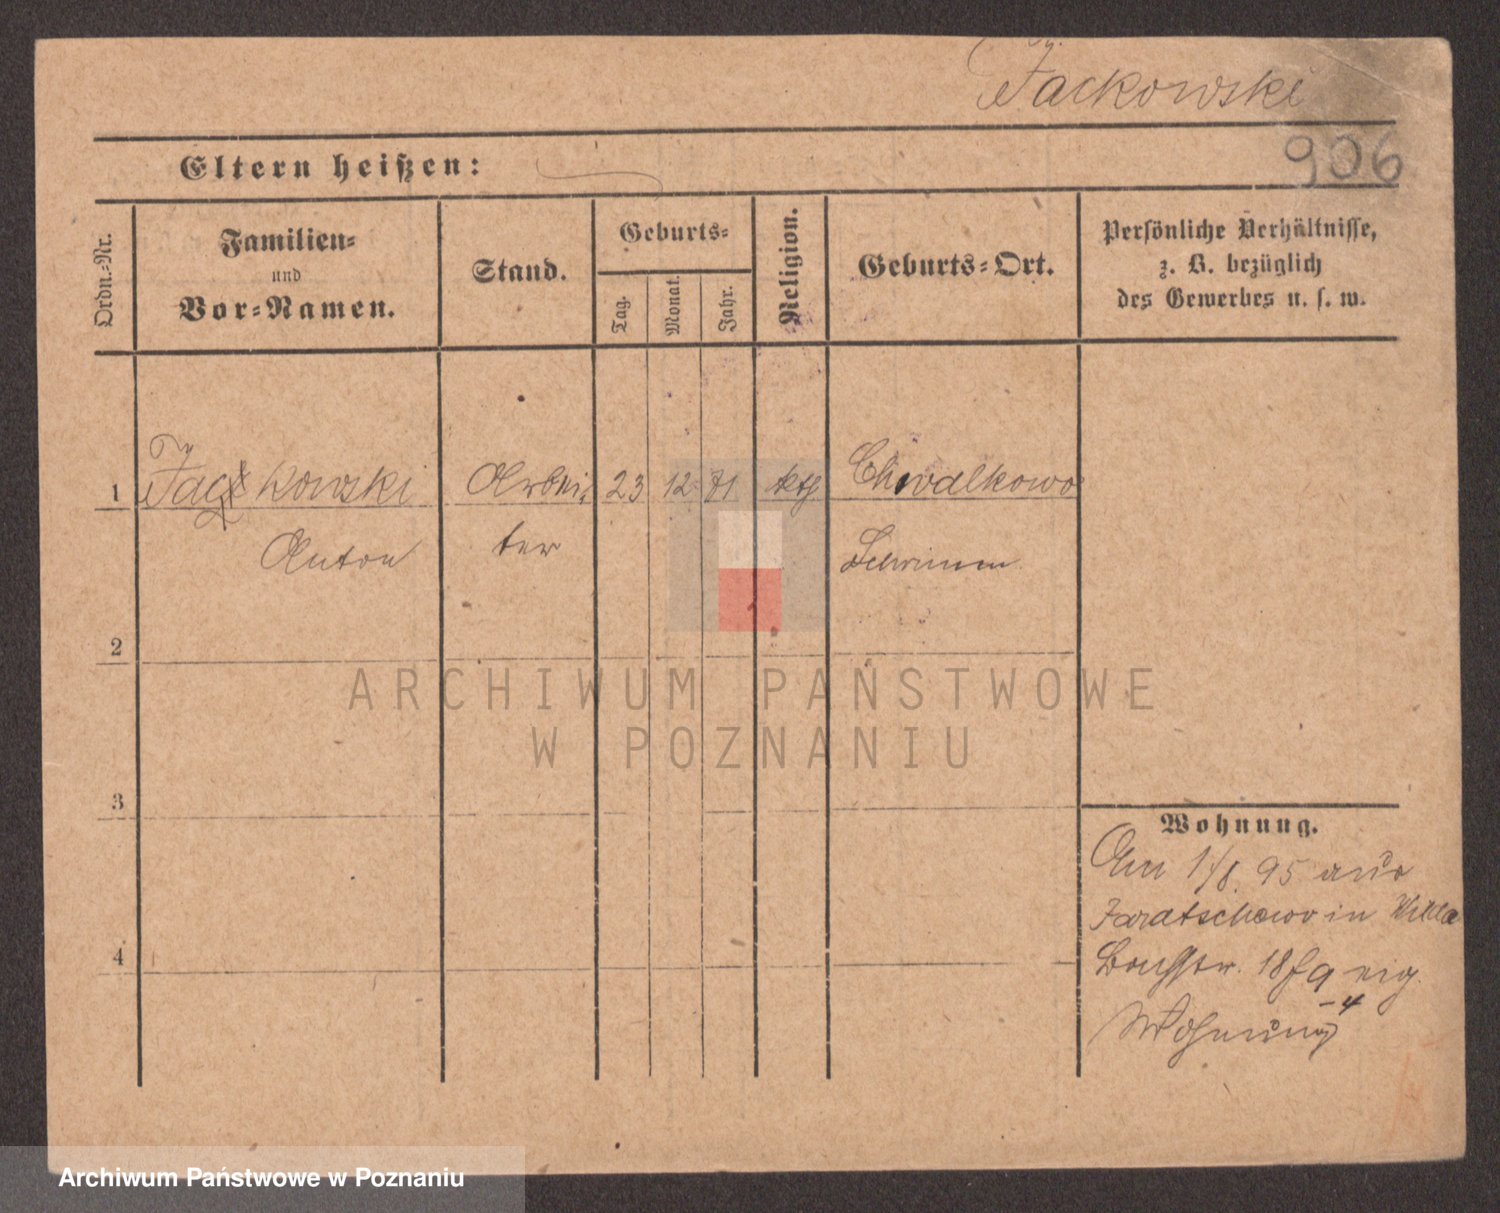 Jackowski
906
Eltern heißen:
Ordn.-Nr.
Familien-
und
Vor-Namen.
Stand.
Geburts-
Tag.
Monat.
Jahr.
Religion.
Geburts-Ort.
Persönliche Verhältnisse,
z. B. bezüglich
des Gewerbes u. s. w.
1 Jackowski Arbei- 23 12 71 kth Chwalkowo
Anton ter Schrimm
2
3
4
Wohnung.
Am 1/8. 95 aus
Jaratschewo in Wilda
18 eig.
-4
Wohnung
ARCHIWUM PAŃSTWOWE
W POZNANIU
Archiwum Państwowe w Poznaniu